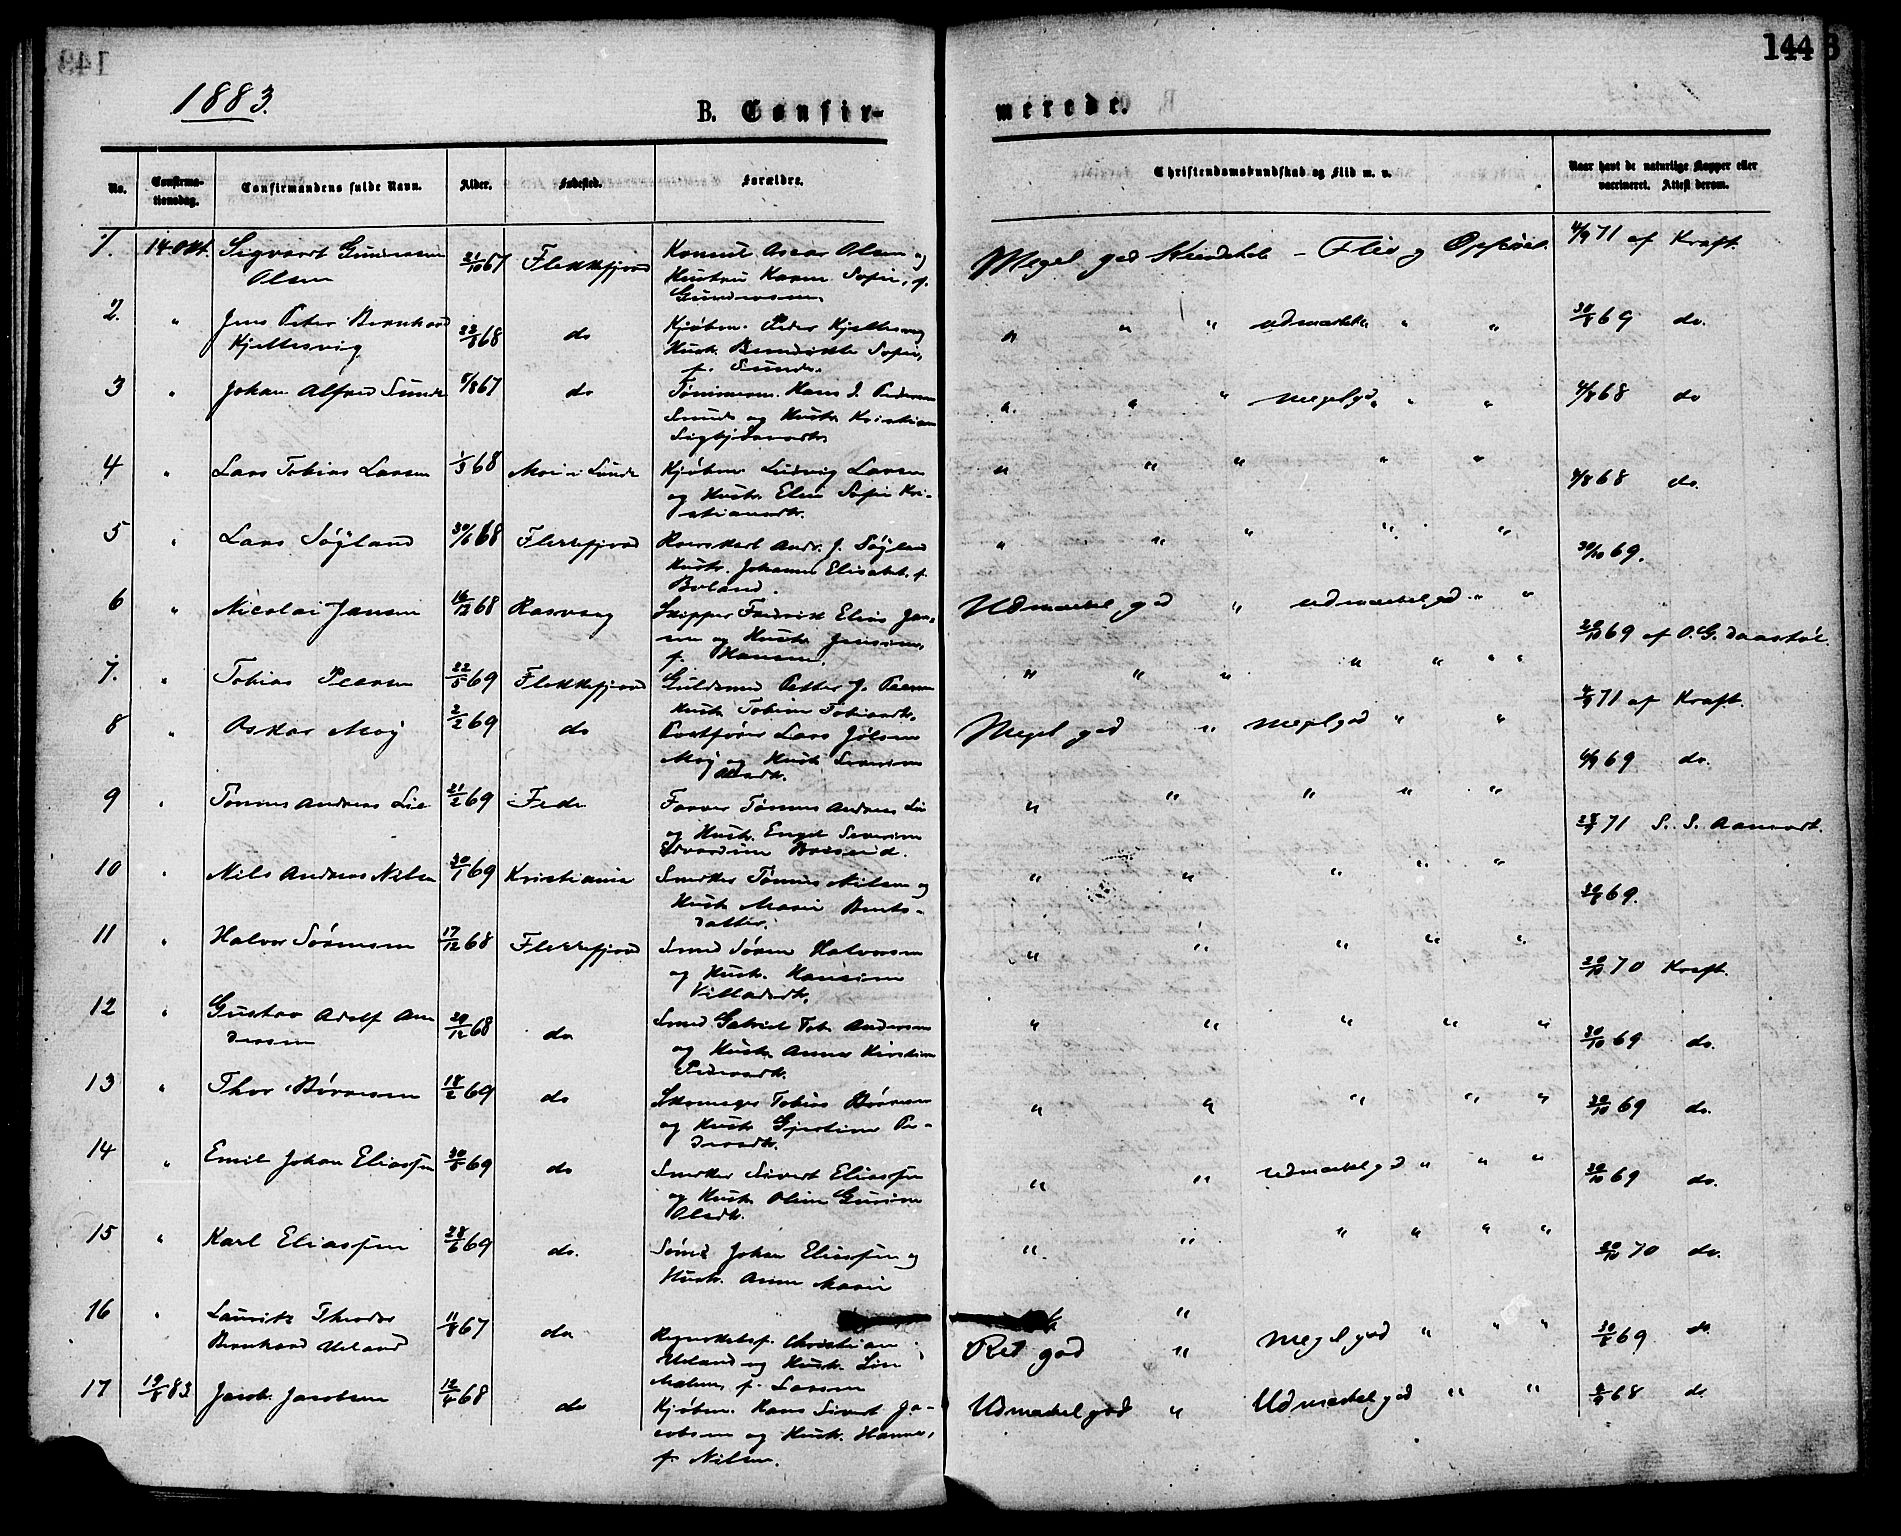 144
1883.
B. Confir-
merede.
No.
Confirma-
tionsdag.
Confirmandens fulde Navn.
Alder.
Fødested.
Forældre.
Christendomskundskab og Flid m. v.
Naar havt de naturlige Kopper eller
vaccineret. Attest derom.
1. 14 Okt. Sigvart Gundersen 21/10 67 Flekkefjord Konsul Oscar Olsen og Meget god Kundskab - Flid og Opførsel. 4/9 71 af Kraft.
Olsen Hustru Karen Sofie, f.
Gundersen.
2. " Jens Peter Bernhard 23/3 68 do Kjøbm. Peder Kjellesvig " " " udmærket " " 30/8 69 do.
Kjellesvig Hust. Bendikte Sofie,
f. Sunde.
3 " Johan Alfred Sunde 5/8 67 do Tømmerm. Hans J. Pedersen " " " meget god " " 4/8 68 do
Sunde og Hustr. Kristiane
Sigbjørnsdtr.
4 " Lars Tobias Larsen 1/3 68 Moi i Lunde Kjøbm Ludvig Larsen " " " " " 4/8 68 do.
og Hust. Elen Sofie Kri-
stiansdtr.
5 " Lars Søyland 30/6 68 Flekkefjord Andr. J. Søyland " " " " " 30/10 69.
Hustr. Johanne Elisabet, f.
Boland.
6 " Nicolai Jansen 16/12 68 Rasvaag Skipper Fredrik Elias Jan- Udmærket god " udmærket god " " 20/10 69 af O. G. Daastøl.
sen og Hustr. Jensine,
f. Hansen.
7. " Tobias Peersen 22/5 69 Flekkefjord Guldsmed Petter J. Peersen " " " " " " " 4/9 71 af Kraft.
Hustr. Tobine Tobiasdtr.
8 " Oskar Moy 2/2 69 do Postfører Lars Jølsen Meget god " meget god " " 4/9 69 do.
Moy og Hustr. Severine
Olsdtr.
9 " Tønnes Andreas Lie 21/2 69 Feda Farver Tønnes Andreas Lie " " " " " 71 S. S. Aamodt.
og Hustr. Engel Severine
Edvardine Briseid.
10 " Nils Andreas Nilsen 30/1 69 Kristiania Snedker Tønnes Nilsen og " " " " " 69.
Hustr. Marie Bents-
datter.
11 " Halvor Sørensen 17/12 68 Flekkefjord Smed Søren Halvorsen " " " " " 70 Kraft.
og Hustr. Hansine
Villadsdtr.
12 " Gustav Adolf An 29/12 68 do Smed Gabriel Tob. Andersen " " " " " 30/10 69 do.
dersen og Hustr. Anne Kirstine
Pedersdtr.
13 " Thor Børresen 18/2 69 do Skomager Tobias Børresen " " " " " 30/10 69 do.
og Hustr. Gjertine Pe-
dersdtr.
14 " Emil Johan Eliassen 30/5 69 do Snedker Sivert Eliassen " " udmærket god " " " 30/10 69 do.
og Hustr. Oline Gurine
Olsdtr.
15 " Karl Eliassen 28/6 69 do. Sømd Johan Eliassen og " " " " " " 20/10 70 do.
Hustr. Anne Marie
16 " Lauritz Theodor 11/8 67 do Regnskabsf. Christian Ret god " meget god " " " 30/8 69 do
Bernhard Ueland Ueland og Hustr. Lise
Malene, f. Larsen
17 19/8 83. Jacob Jacobsen 12/4 68 do Kjøbm. Hans Sivert Ja- Udmærket god " Udmærket god " " 68 do
cobsen og Hustr. Hanne,
f. Nilsen.